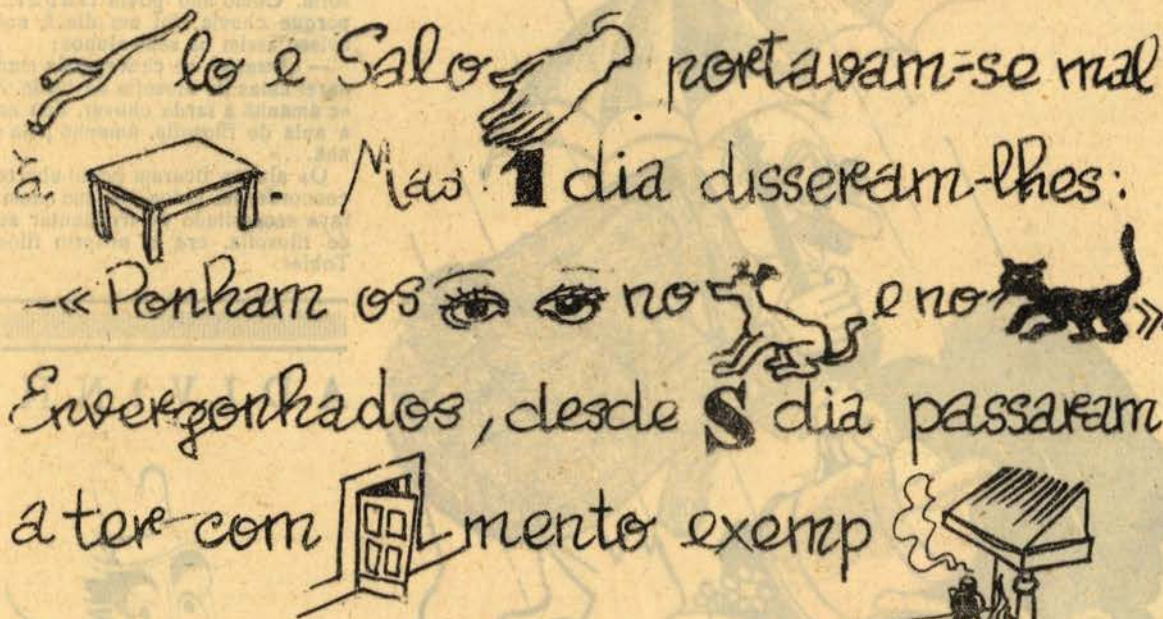 lo e Salo portavam-se mal
à. Mas 1 dia disseram-lhes:
-« Ponham os no e no »
Envergonhados, desde S dia passaram
a ter com mento exemp